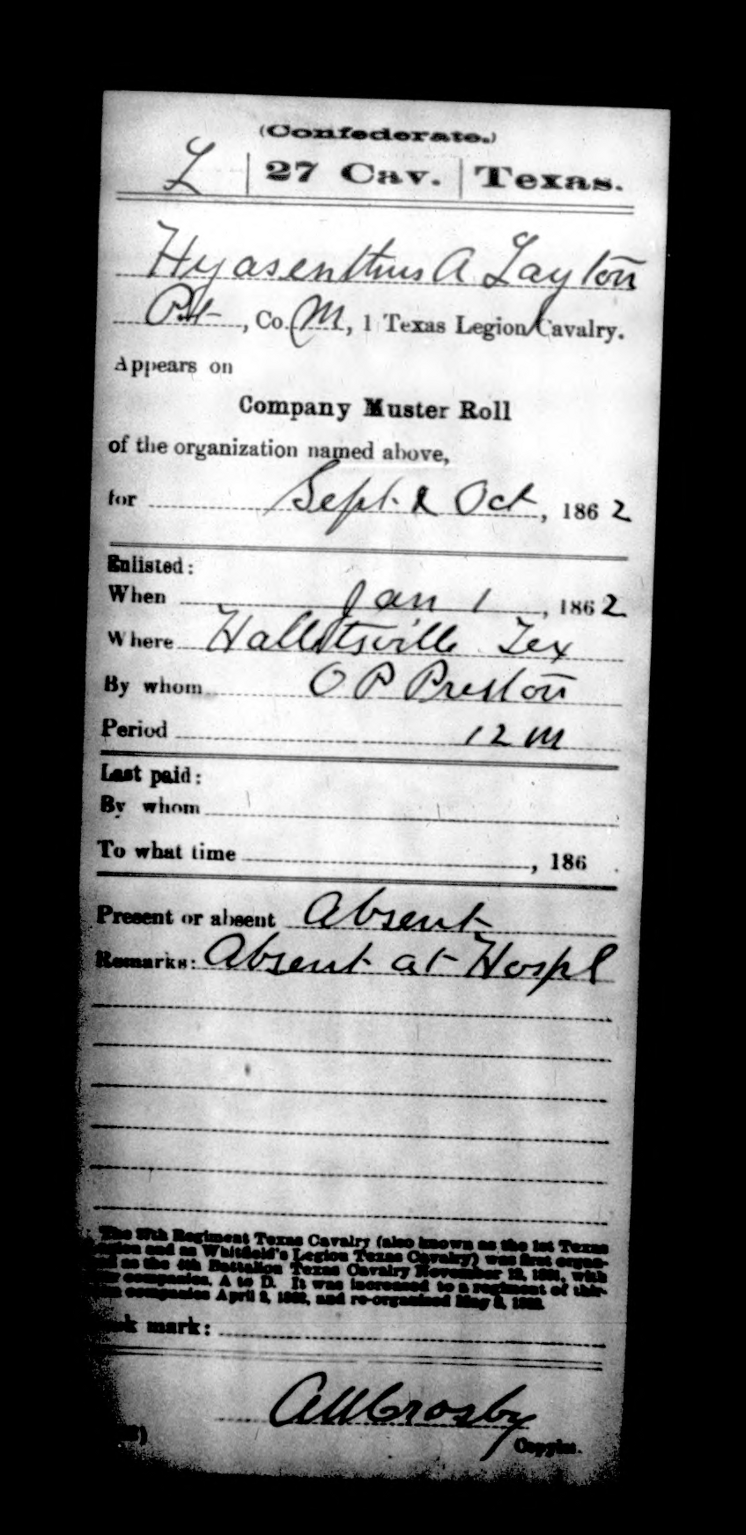 (Confederate.)
L | 27 Cav. | Texas.
Hyasenthus A Layton
Pvt, Co. M, 1 Texas Legion Cavalry.
Appears on
Company Muster Roll
of the organization named above,
for Sept & Oct, 1862
Enlisted:
When Jan 1, 1862
Where Hallettsville Tex
By whom O P Preston
Period 12 M
Last paid:
By whom
To what time , 186 .
Present or absent Absent
Remarks: Absent at Hospl
The 27th Regiment Texas Cavalry (also known as the 1st Texas
Legion and as Whitfield's Legion Texas Cavalry) was first organ-
as the 4th Battalion Texas Cavalry November 13, 1861, with
companies, A to D. It was increased to a regiment of thir-
companies April 2, 1862, and re-organized May 8, 1862.
mark:
Crosby
Copyist.